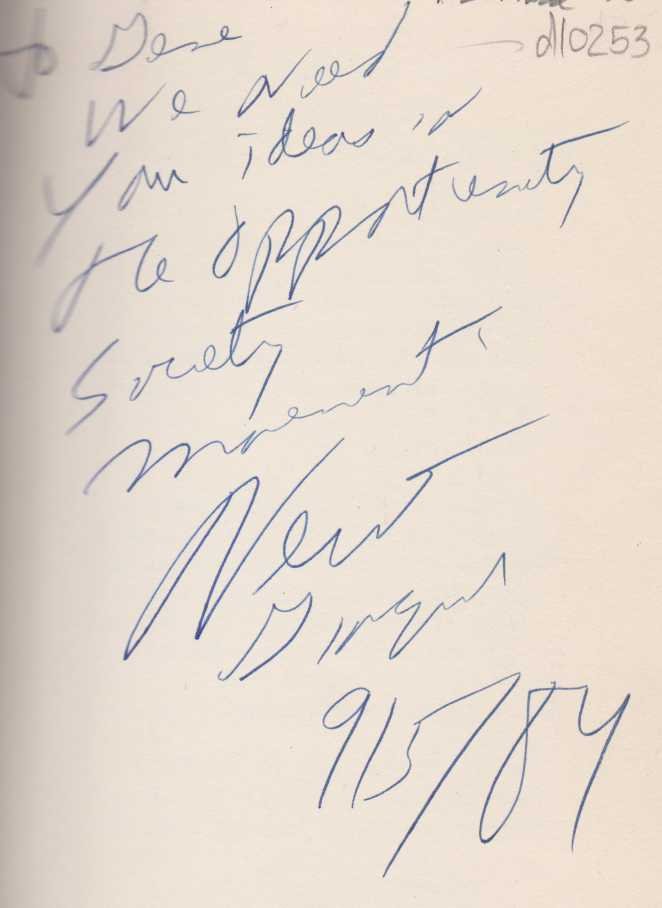 d10253
To Gene
We Need
Your ideas in
the opportunity
Society
movement.
Newt
Gingrich
9/5/84